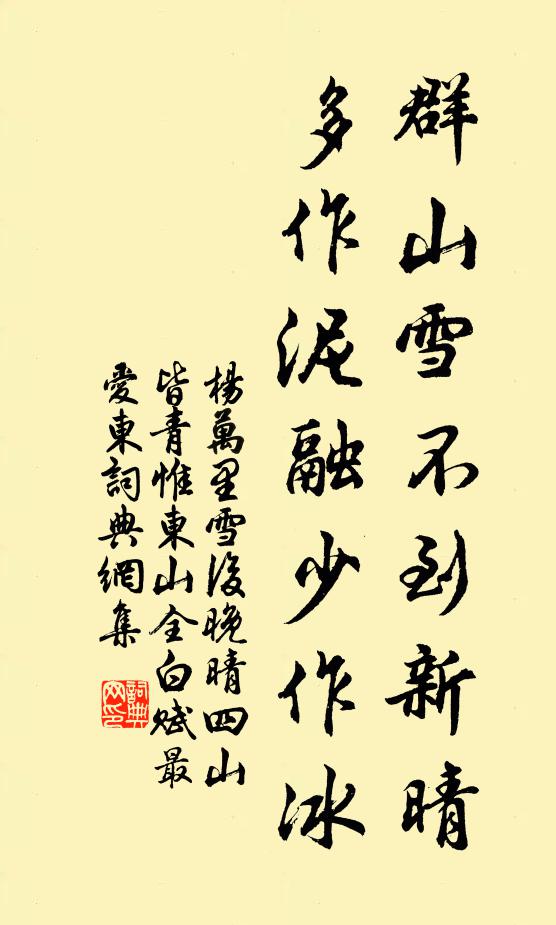 群山雪不到新晴
多作泥融少作冰
楊萬里雪後晚晴四山
皆青惟東山全白賦最
愛東詞典網集
詞典网印